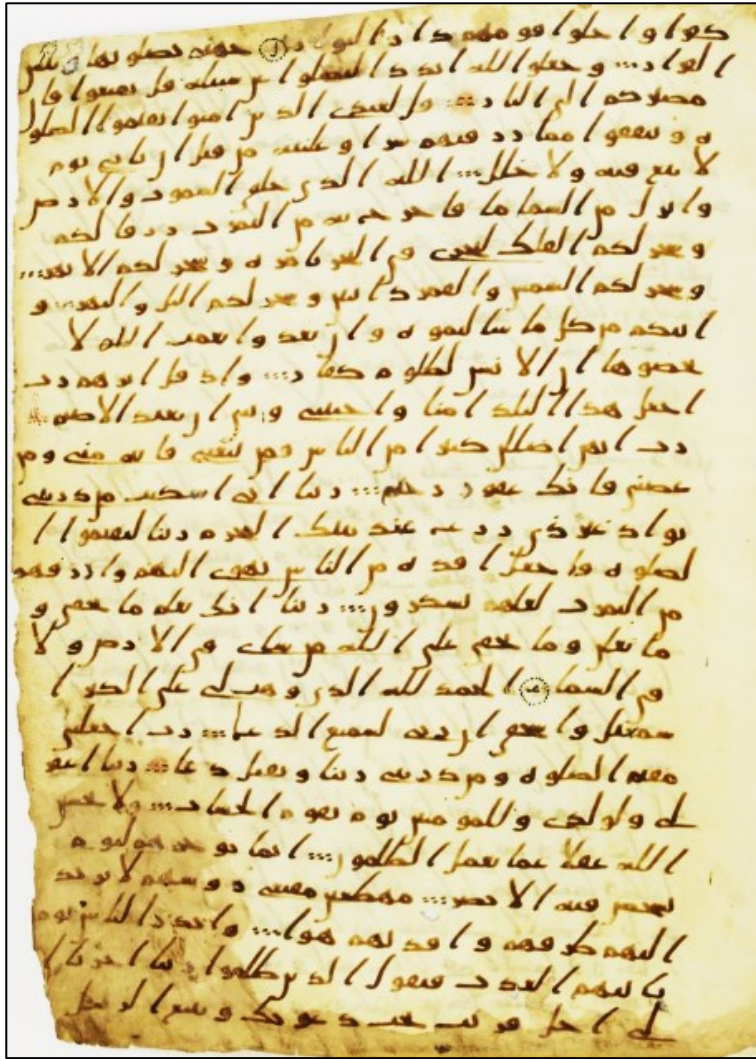 كفرا واحلوا قومهم دار البوار جهنم يصلونها وبئس
القرار وجعلوا لله اندادا ليضلوا عن سبيله قل تمتعوا فان
مصيركم الى النار قل لعبدي الذين امنوا يقيموا الصلو
ة وينفقوا مما رزقنهم سرا وعلنية من قبل ان ياتي يوم
لا بيع فيه ولا خلل الله الذي خلق السموت والارض
وانزل من السما ما فاخرج به من الثمرت رزقا لكم
وسخر لكم الفلك لتجري في البحر بامره وسخر لكم الانهر
وسخر لكم الشمس والقمر دائبين وسخر لكم اليل والنهر و
اتيكم من كل ما سالتموه وان تعدوا نعمت الله لا
تحصوها ان الانسن لظلوم كفار واذ قال ابرهيم رب
اجعل هذا البلد امنا واجنبني وبني ان نعبد الاصنم
رب انهن اضللن كثيرا من الناس فمن تبعني فانه مني ومن
عصني فانك غفور رحيم ربنا اني اسكنت من ذريتي
بواد غير ذي زرع عند بيتك المحرم ربنا ليقيموا ا
لصلوة فاجعل افدة من الناس تهوي اليهم وارزقهم
من الثمرت لعلهم يشكرون ربنا انك تعلم ما نخفي و
ما نعلن وما يخفى على الله من شاي في الارض ولا
في السما الحمد لله الذي وهب لي على الكبر ا
سمعيل واسحق ان ربي لسميع الدعا رب اجعلني
مقيم الصلوة ومن ذريتي ربنا وتقبل دعا ربنا اغفر
لي ولولدي وللمومنين يوم يقوم الحساب ولا تحسبن
الله غفلا عما يعمل الظلمون انما يوخرهم ليوم
تشخص فيه الابصر مهطعين مقنعي روسهم لا يرتد
اليهم طرفهم وافدتهم هوا وانذر الناس يوم
ياتيهم العذب فيقول الذين ظلموا ربنا اخرنا ا
لى اجل قريب نجب دعوتك ونتبع الرسل